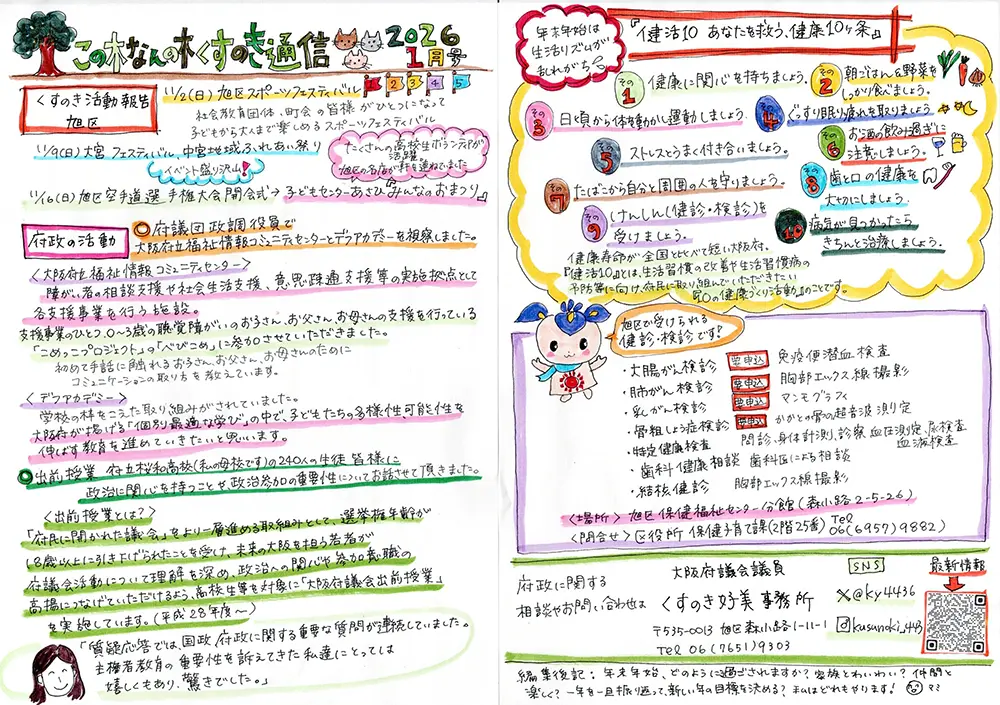 この木なんの木くすのき通信
2026
1月号
くすのき活動報告
旭区
1 2 3 4 5
11/2(日) 旭区スポーツフェスティバル
社会教育団体、町会の皆様がひとつになって
子どもから大人まで楽しめるスポーツフェスティバル
11/9(日) 大宮フェスティバル、中宮地域ふれあい祭り
イベント盛り沢山!
たくさんの高校生ボランティアが
活躍
旭区の名店が軒を連ねていました
11/16(日) 旭区空手道選手権大会開会式→子どもセンターあさひ『みんなのおまつり』
府政の活動
府議団政調役員で
大阪府立福祉情報コミュニティセンターとデフアカデミーを視察しました。
〈大阪府立福祉情報コミュニティセンター〉
障がい者の相談支援や社会生活支援、意思疎通支援等の実施拠点として
各支援事業を行う施設。
支援事業のひとつ、0~3歳の聴覚障がいのお子さん、お父さん、お母さんの支援を行っている
「こめっこプロジェクト」の「べびこめ」に参加させていただきました。
初めて手話に触れるお子さん、お父さん、お母さんのために
コミュニケーションの取り方を教えています。
〈デフアカデミー〉
学校の枠をこえた取り組みがされていました。
大阪府が掲げる「個別最適な学び」の中で、子どもたちの多様性可能性を
伸ばす教育を進めていきたいと思います。
出前授業 府立桜和高校(私の母校です)の240人の生徒皆様に
政治に関心を持つことや、政治参加の重要性についてお話させて頂きました。
〈出前授業とは?〉
「府民に開かれた議会」をより一層進める取組みとして、選挙権年齢が
18歳以上に引き上げられたことを受け、未来の大阪を担う若者が
府議会活動について理解を深め、政治への関心や参加意識の
高揚につなげていただけるよう、高校生等を対象に「大阪府議会出前授業」
を実施しています。(平成28年度~)
「質疑応答では、国政、府政に関する重要な質問が連続していました。
主権者教育の重要性を訴えてきた私達にとっては
嬉しくもあり、驚きでした。」
年末年始は
生活リズムが
乱れがち
『健活10 あなたを救う、健康10ヶ条』
その1 健康に関心を持ちましょう。
その2 朝ごはん&野菜を
しっかり食べましょう。
その3 日頃から体を動かし運動しましょう。
その4 ぐっすり眠り疲れを取りましょう。
その5 ストレスとうまく付き合いましょう。
その6 お酒の飲み過ぎに
注意しましょう。
その7 たばこから自分と周囲の人を守りましょう。
その8 歯と口の健康を
大切にしましょう。
その9 けんしん(健診・検診)を
受けましょう。
その10 病気が見つかったら
きちんと治療しましょう。
健康寿命が全国と比べて短い大阪府。
『健活10』とは、生活習慣の改善や生活習慣病の
予防等に向け、府民に取り組んでいただきたい
『10の健康づくり活動』のことです。
旭区で受けられる
健診・検診です!
・大腸がん検診 要申込 免疫便潜血検査
・肺がん検診 要申込 胸部エックス線撮影
・乳がん検診 要申込 マンモグラフィ
・骨粗しょう症検診 要申込 かかとの骨の超音波測定
・特定健康検査 問診、身体計測、診察、血圧測定、尿検査
血液検査
・歯科健康相談 歯科医による相談
・結核健診 胸部エックス線撮影
〈場所〉 旭区保健福祉センター分館(森小路2-5-26)
〈問合せ〉 区役所 保健子育て課(2階25番) Tel
06(6957)9882)
府政に関する
相談やお問い合わせは
大阪府議会議員
くすのき好美 事務所
〒535-0013 旭区森小路1-11-11
Tel 06(7651)9303
SNS
X @ky4436
kusunoki_443
最新情報
編集後記:年末年始、どのように過ごされますか?家族とわいわい?仲間と
楽しく?一年を一旦振り返って、新しい年の目標を決める?私はどれもやります!